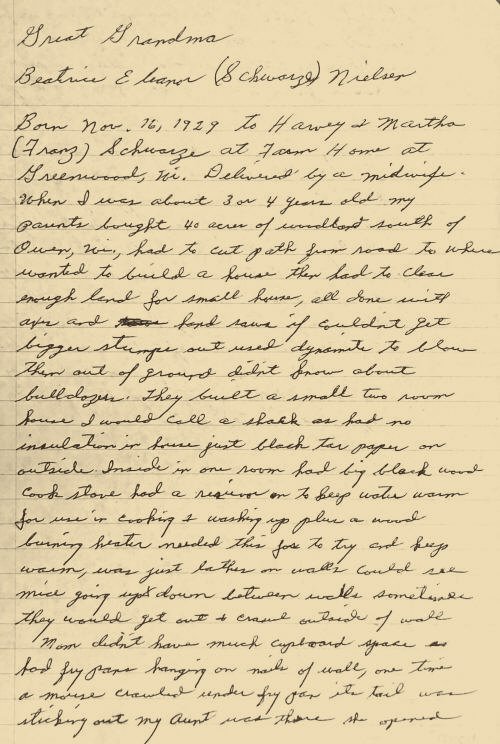 Great Grandma
Beatrice Eleanor (Schwarze) Nielsen
Born Nov. 16, 1929 to Harvey & Martha
(Franz) Schwarze at Farm Home at
Greenwood, Wi. Delivered by a midwife.
When I was about 3 or 4 years old my
parents bought 40 acres of woodland south of
Owen, Wi., had to cut path from road to where
wanted to build a house then had to clear
enough land for small house, all done with
axes and hand saws if couldn't get
bigger stumps out used dynamite to blow
them out of ground didn't know about
bulldozers. They built a small two room
house I would call a shack as had no
insulation in house just black tar paper on
outside. Inside in one room had big black wood
cook stove had a on to keep water warm
for use in cooking & washing up plus a wood
burning heater needed this for to try and keep
warm, was just lathes on walls could see
mice going up & down between walls sometimes
they would get out & crawl outside of wall
Mom didn't have much cupboard space so
had fry pans hanging on nails of wall, one time
a mouse crawled under fry pan its tail was
sticking out my Aunt was there she opened